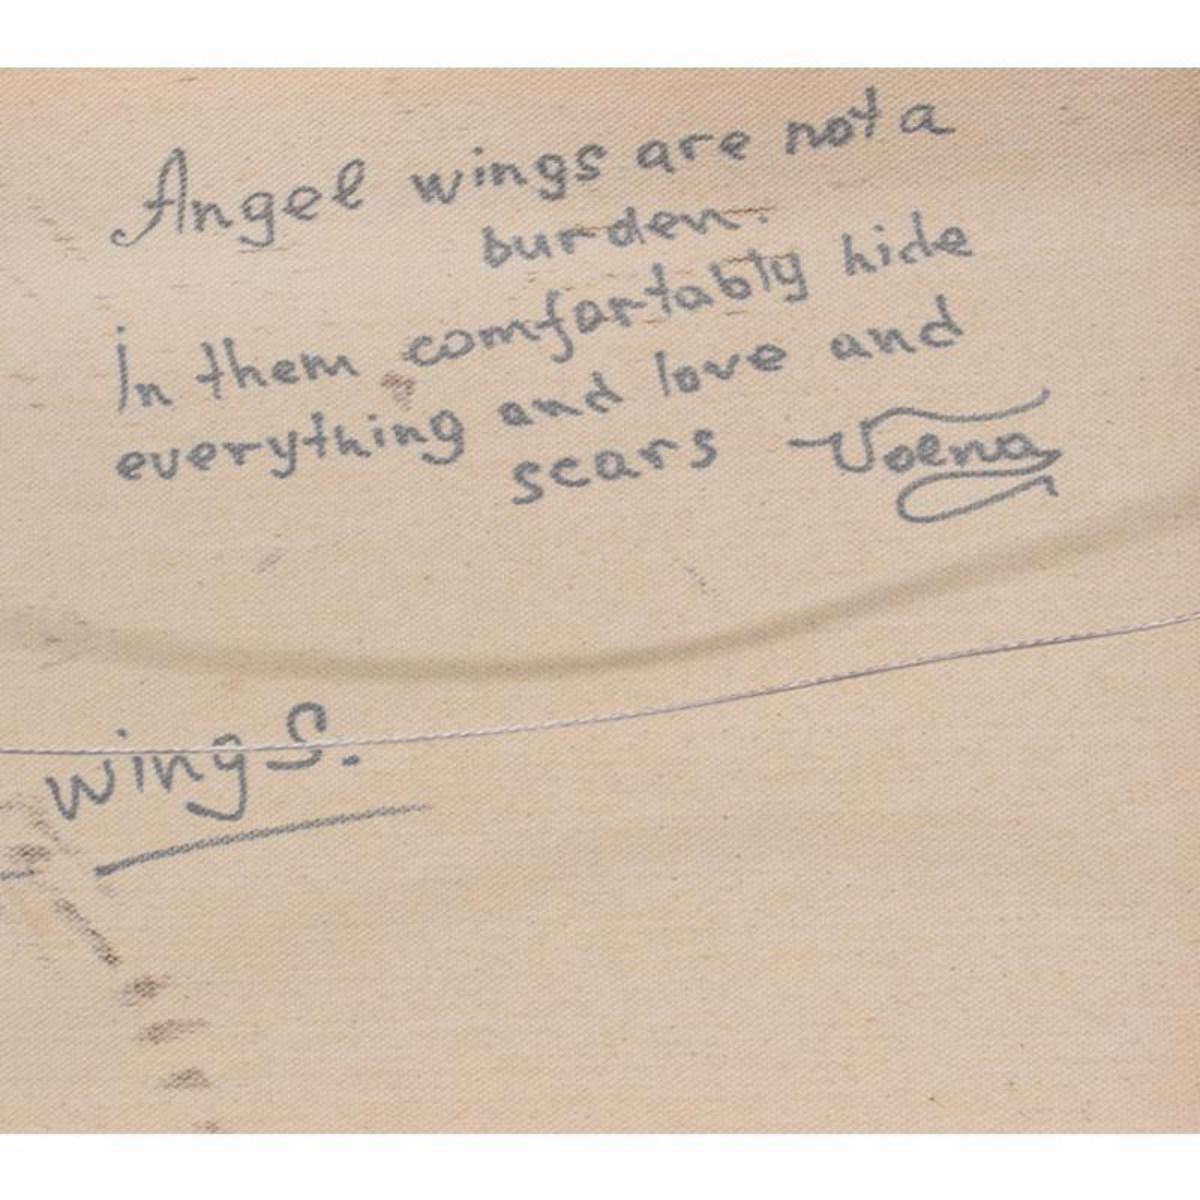 Angel wings are not a
burden.
In them comfortably hide
everything and love and
scars Voena
wings.